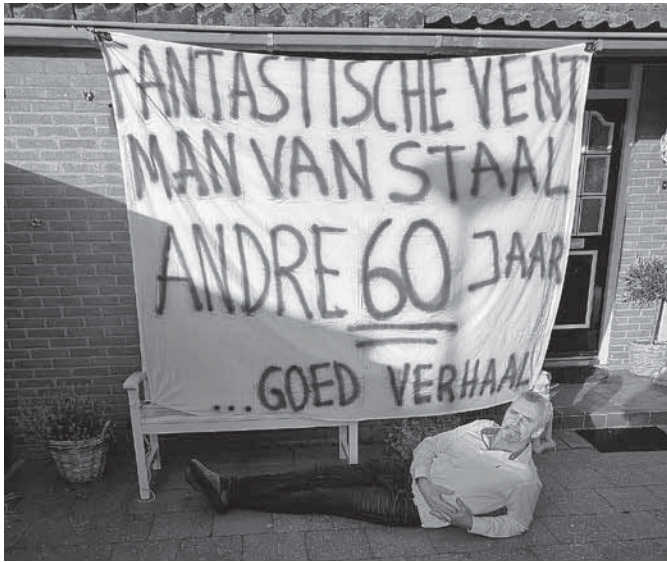 FANTASTISCHE VENT
MAN VAN STAAL
ANDRE 60 JAAR
...GOED VERHAAL